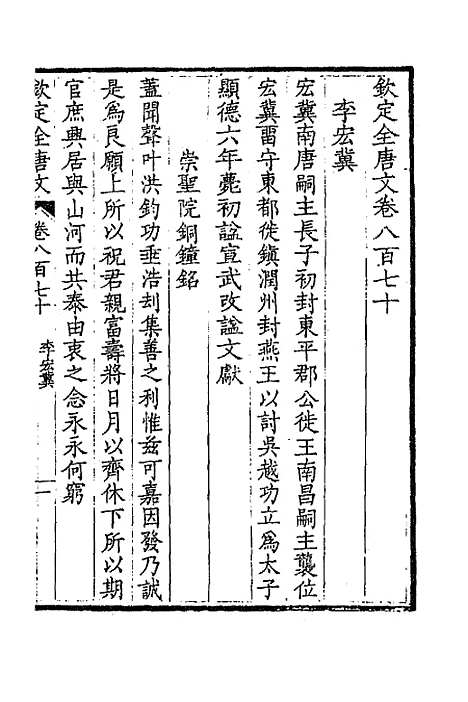 欽定全唐文卷八百七十
李宏冀
宏冀南唐嗣主長子初封東平郡公徙王南昌嗣主襲位
宏冀畱守東都徙鎭潤州封燕王以討吳越功立爲太子
顯德六年薨初諡宣武改諡文獻
崇聖院銅鐘銘
蓋聞聲叶洪鈞功垂浩刦集善之利惟玆可嘉因發乃誠
是爲良願上所以祝君親富壽將日月以齊休下所以期
官庶興居與山河而共泰由衷之念永永何窮
欽定全唐文
卷八百七十
李宏冀
一